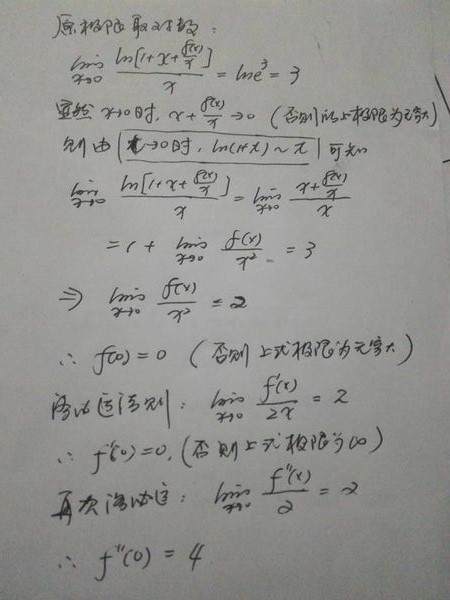 原极限取对数:
lim x→0 ln[1+x+f(x)/x] / x = lne³ = 3
显然 x→0时, x+f(x)/x→0 (否则以上极限为无穷大)
则由 t→0时, ln(1+t)~t 可知
lim x→0 ln[1+x+f(x)/x] / x = lim x→0 (x+f(x)/x) / x
= 1 + lim x→0 f(x)/x² = 3
⇒ lim x→0 f(x)/x² = 2
∴ f(0)=0 (否则上式极限为无穷大)
洛必达法则: lim x→0 f'(x)/2x = 2
∴ f'(0)=0, (否则上式极限为∞)
再次洛必达: lim x→0 f''(x)/2 = 2
∴ f''(0) = 4